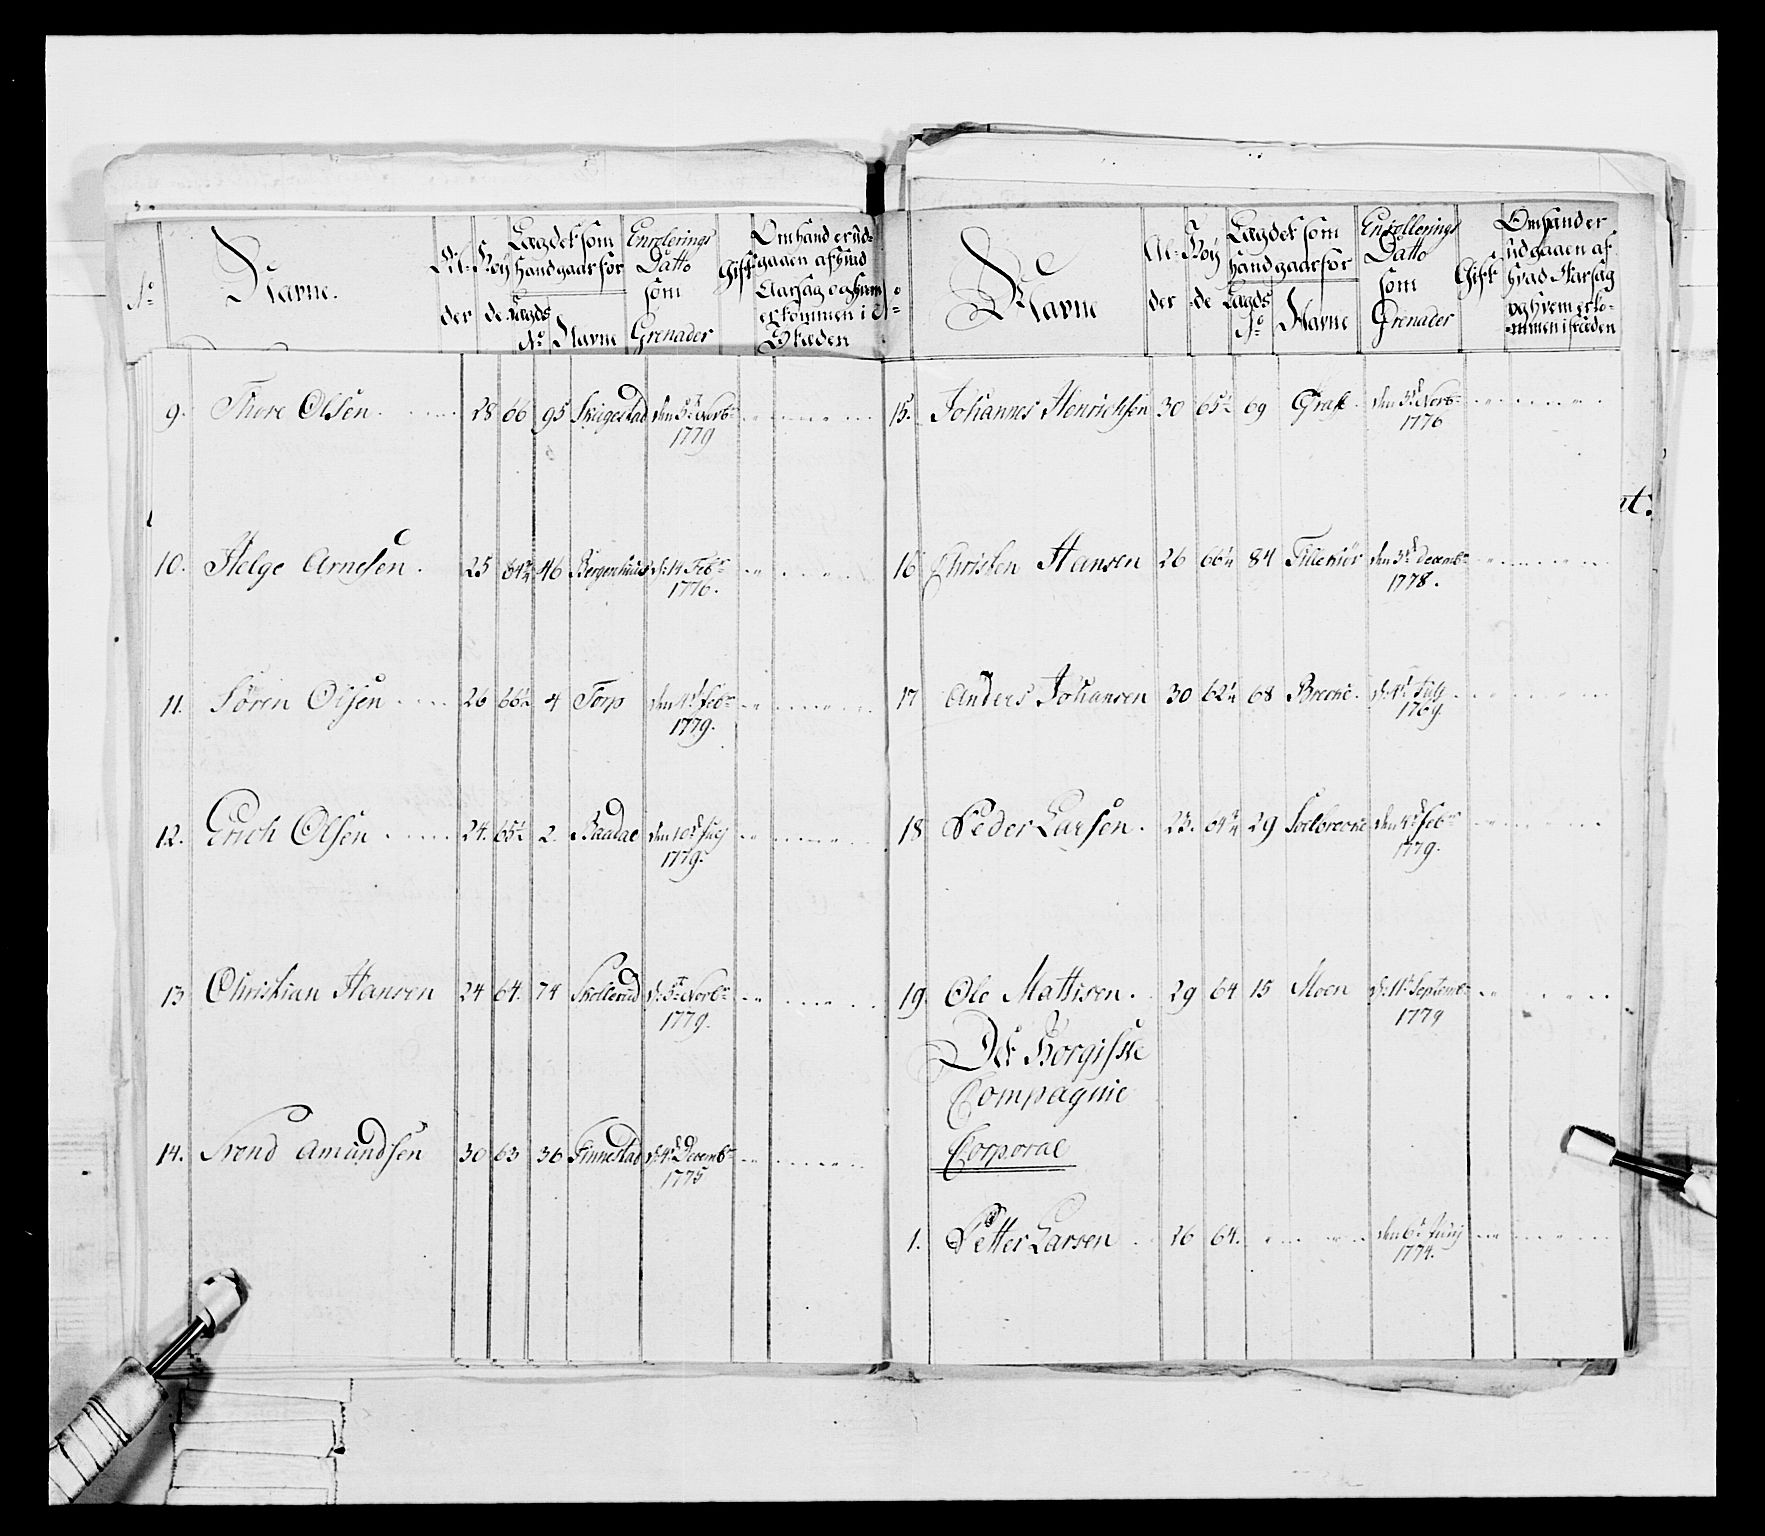 No
Navne.
Al-
der
Høy
de
Lagdet som
hand gaar for
Lagds
No Navne
Enrolerings
Datto
som
Grenader
Gift
Om hand er ud-
gaaen af hvad
Aarsag og hvem
er kommen i
Stæden
9. Thore Olsen. 28 66 95 Skiigestad den 3de Novbr
1779
10. Helge Arnesen. 25 64¾ 46 Bergenhuus d: 14 Febr
1776.
11. Sören Olsen 26 66½ 4 Torp den 4de Febr
1779.
12. Erich Olsen 24. 65½ 2. Baadal den 10de July
1779.
13 Christian Hansen 24 64. 74 Skollerud d: 3de Novbr
1779.
14. Trond Amundsen 30 63 36 Finnestad d: 4de Decembr
1775
No
Navne
Al-
der
Høy
de
Lagdet som
hand gaar for
Lagds
No Navne
Enrollerings
Datto
som
Grenader
Gift
Om hand er
udgaaen af
hvad Aarsag
og hvem er ko-
mmen i stæden
15. Johannes Henrichsen 30 65½ 69 Graft den 3de Novbr
1776
16 Christen Hansen 26 66¼ 84 den 3de Decembr
1778.
17 Anders Johansen 30 62¼ 68 Brecke. d: 4de July
1769.
18 Peder Larsen. 23. 64¾ 29 den 4de Febr
1779.
19. Ole Mattisen. 29 64 15 Moen d: 11te Septembr
1779
Det Borgiske
Compagnie
Corporal
1. Petter Larsen 26 64. den 6te Junij
1774.